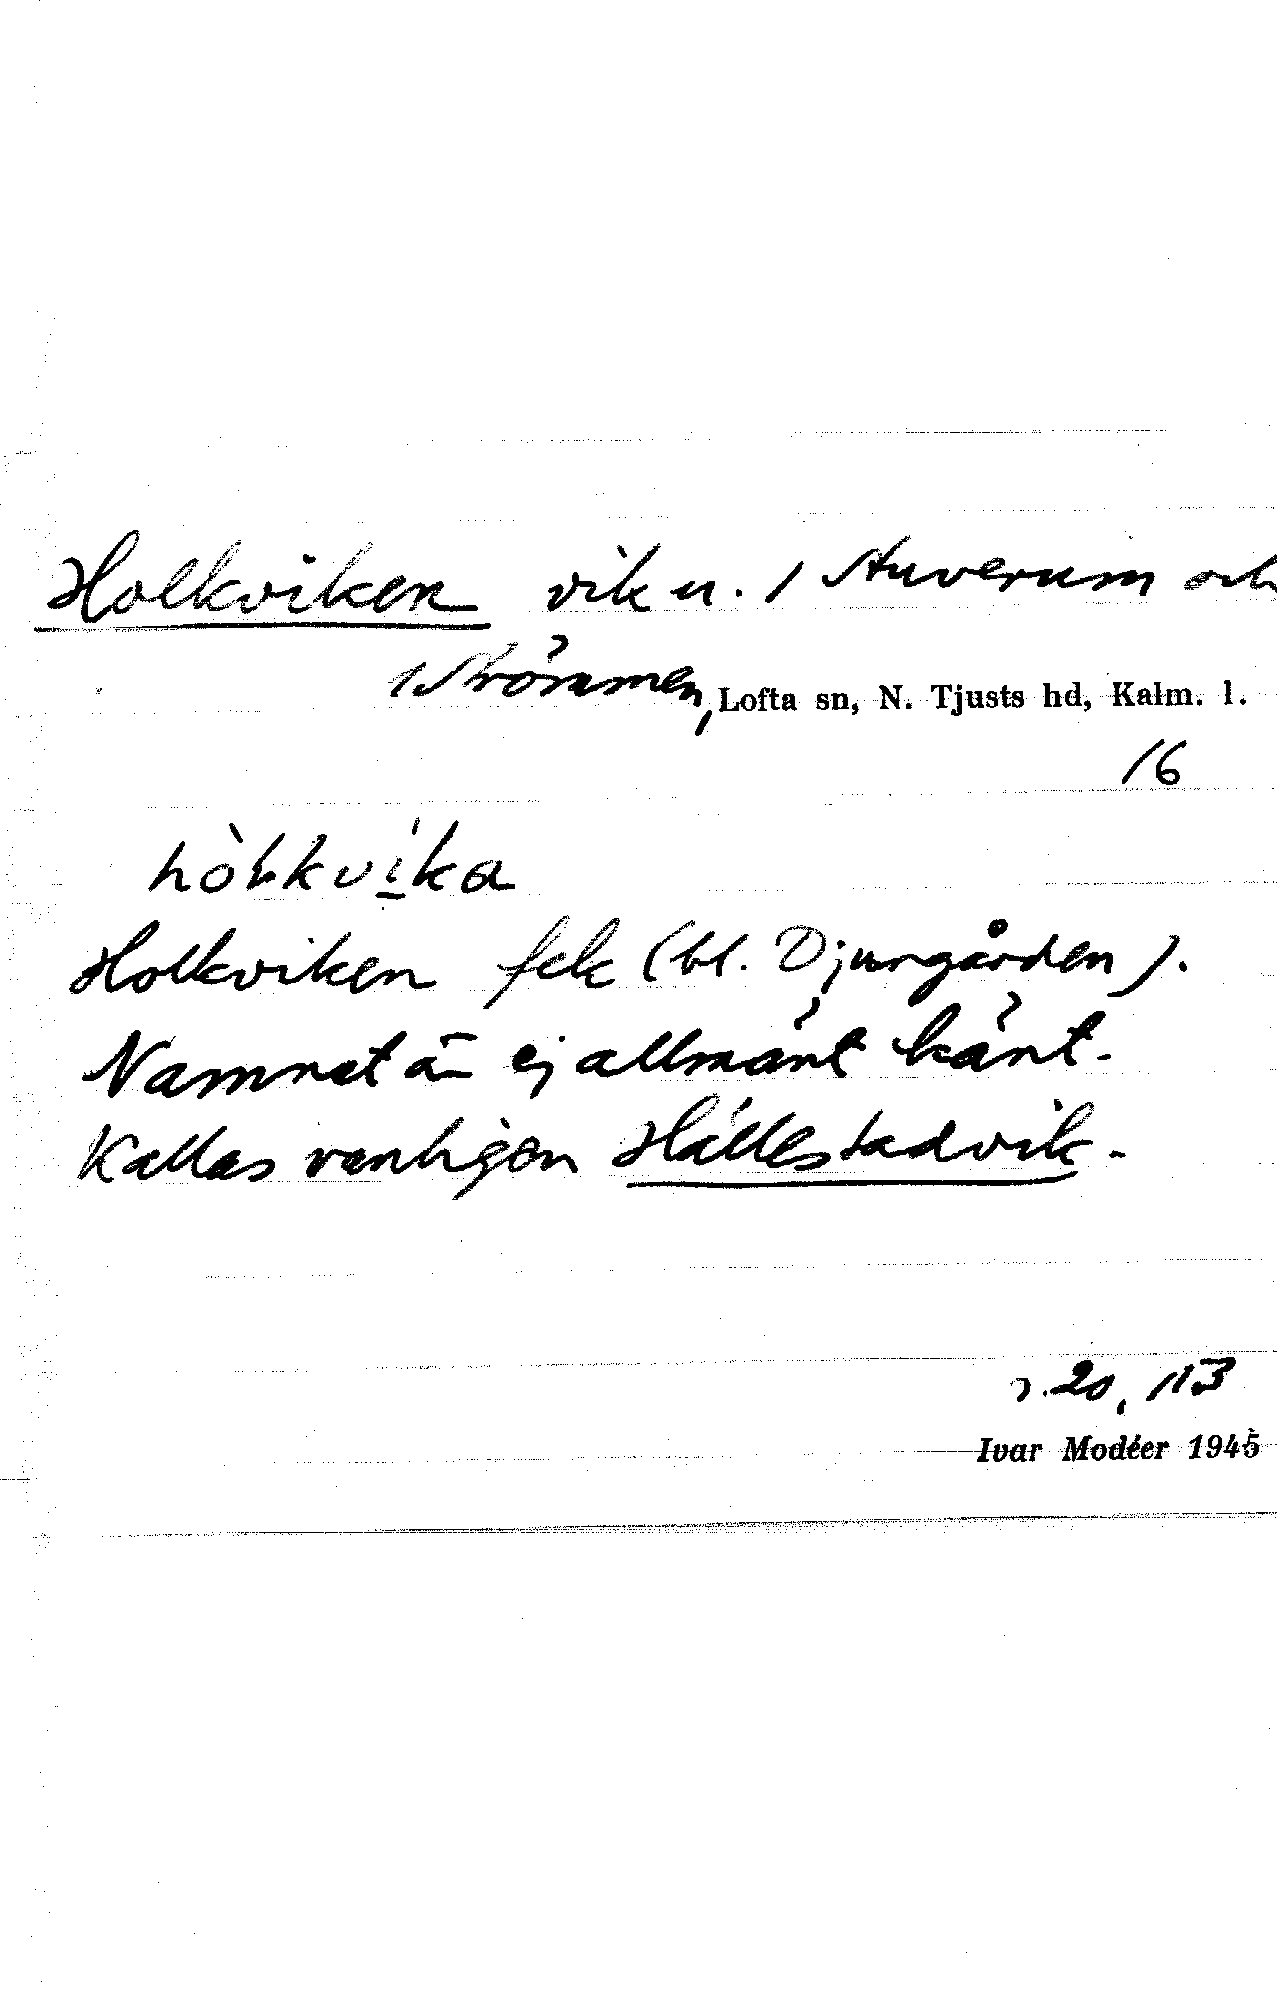 Holkviken vik u. 1 Stuverum och
1 Strömmen, Lofta sn, N. Tjusts hd, Kalm. l.
16
hòłkvíka
Holkviken fek (bl. Djurgården).
Namnet är ej allmänt känt.
Kallas vanligen Hällestadvik.
20, 113
Ivar Modéer 1945